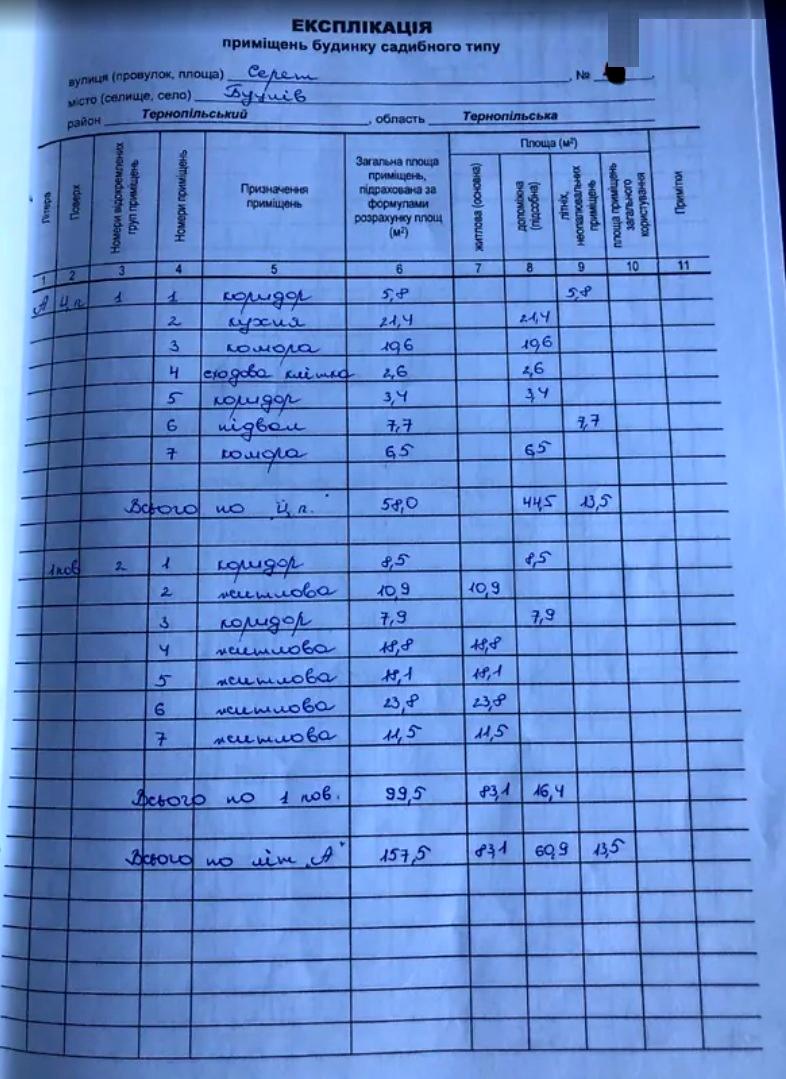 ЕКСПЛІКАЦІЯ
приміщень будинку садибного типу
вулиця (провулок, площа) Серет, №
місто (селище, село)
район Тернопільський, область Тернопільська
Літера Поверх Номери відокремлених груп приміщень Номери приміщень Призначення приміщень Загальна площа приміщень, підрахована за формулами розрахунку площ (м²) Площа (м²) житлова (основна) допоміжна (підсобна) літніх, неопалювальних приміщень площа приміщень загального користування Примітки
1 2 3 4 5 6 7 8 9 10 11
А ц.п. 1 1 коридор 5,8 5,8
2 кухня 21,4 21,4
3 комора 10,6 10,6
4 сходова клітка 2,6 2,6
5 коридор 3,4 3,4
6 підвал 7,7 7,7
7 комора 6,5 6,5
Всього по "ц.п." 58,0 44,5 13,5
1 пов 2 1 коридор 8,5 8,5
2 житлова 10,9 10,9
3 коридор 7,9 7,9
4 житлова 18,8 18,8
5 житлова 18,1 18,1
6 житлова 23,8 23,8
7 житлова 11,5 11,5
Всього по 1 пов. 99,5 83,1 16,4
Всього по літ. "А" 157,5 83,1 60,9 13,5